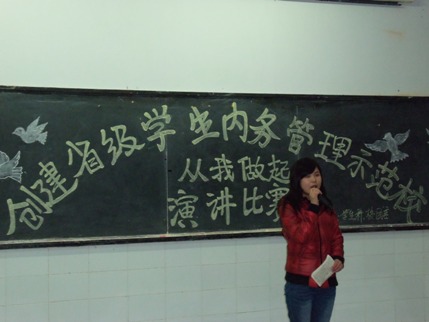 创建省级学生内务管理示范校
从我做起
演讲比赛